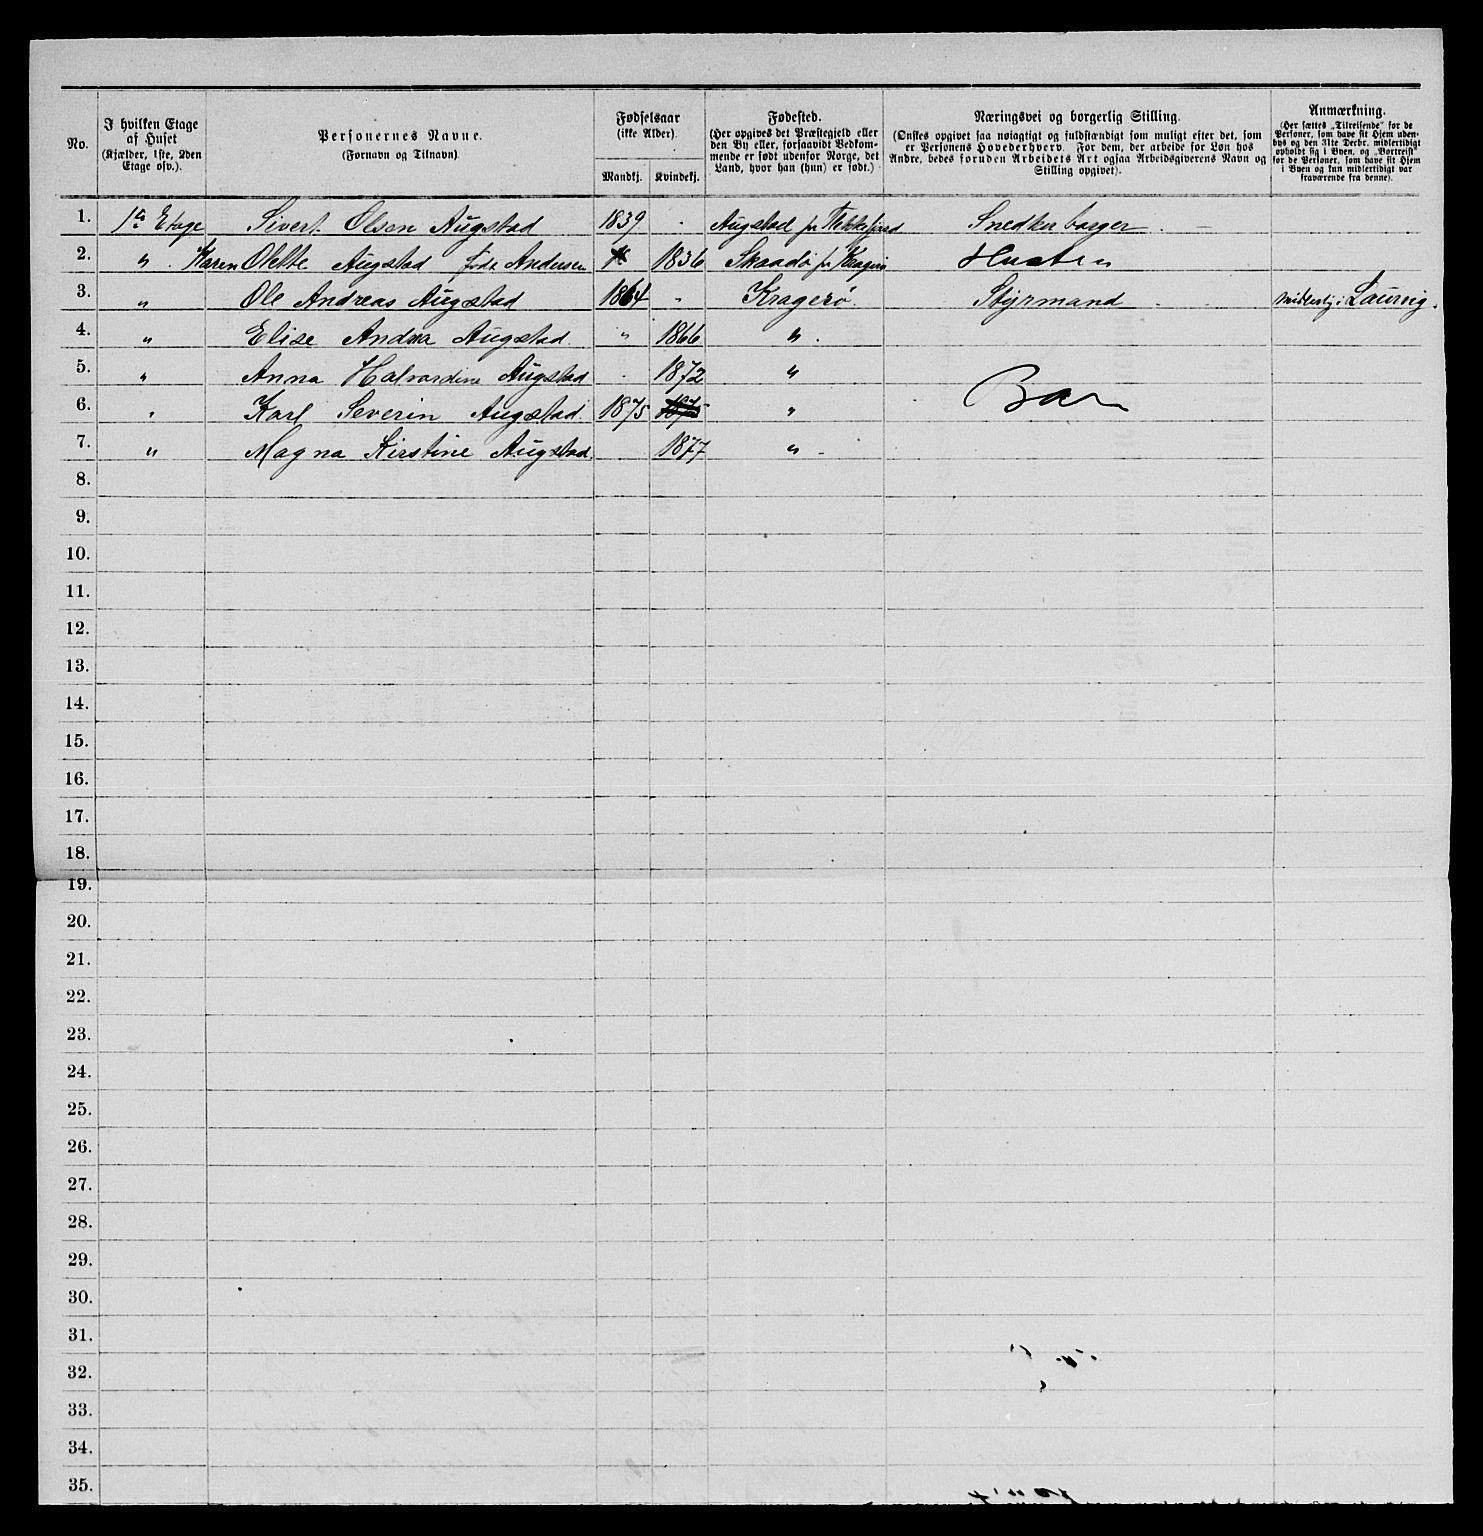 No.
I hvilken Etage
af Huset
(Kjælder, 1ste, 2den
Etage osv.).
Personernes Navne.
(Fornavn og Tilnavn).
Fødselsaar
(ikke Alder).
Mandkj. Kvindekj.
Fødested.
(Her opgives det Præstegjeld eller
den By eller, forsaavidt Vedkom-
mende er født udenfor Norge, det
Land, hvor han (hun) er født.)
Næringsvei og borgerlig Stilling.
(Ønskes opgivet saa nøiagtigt og fuldstændigt som muligt efter det, som
er Personens Hovederhverv. For dem, der arbeide for Løn hos
Andre, bedes foruden Arbeidets Art ogsaa Arbeidsgiverens Navn og
Stilling opgivet).
Anmærkning.
(Her sættes „Tilreisende" for de
Personer, som have sit Hjem uden-
bys og den 31te Decbr. midlertidigt
opholdt sig i Byen, og „Bortreist"
for de Personer, som have sit Hjem
i Byen og kun midlertidigt var
fraværende fra denne).
1. 1ste Etage Sivert Olsen Augstad 1839 " Augstad pr Flekkefjord Snedker borger
2. " Karen Olette Augstad født Andersen 1836 Skaadø pr Kragerø Hustru
3. " Ole Andreas Augstad 1864 " Kragerø Styrmand Midlertdg i Laurvig.
4. " Elise Andrea Augstad " 1866 "
5. " Anna Halvardine Augstad 1872 "
6. " Karl Severin Augstad 1875 1875 " Børn
7. " Magna Kirstine Augstad 1877 "
8.
9.
10.
11.
12.
13.
14.
15.
16.
17.
18.
19.
20.
21.
22.
23.
24.
25.
26.
27.
28.
29.
30.
31.
32.
33.
34.
35.